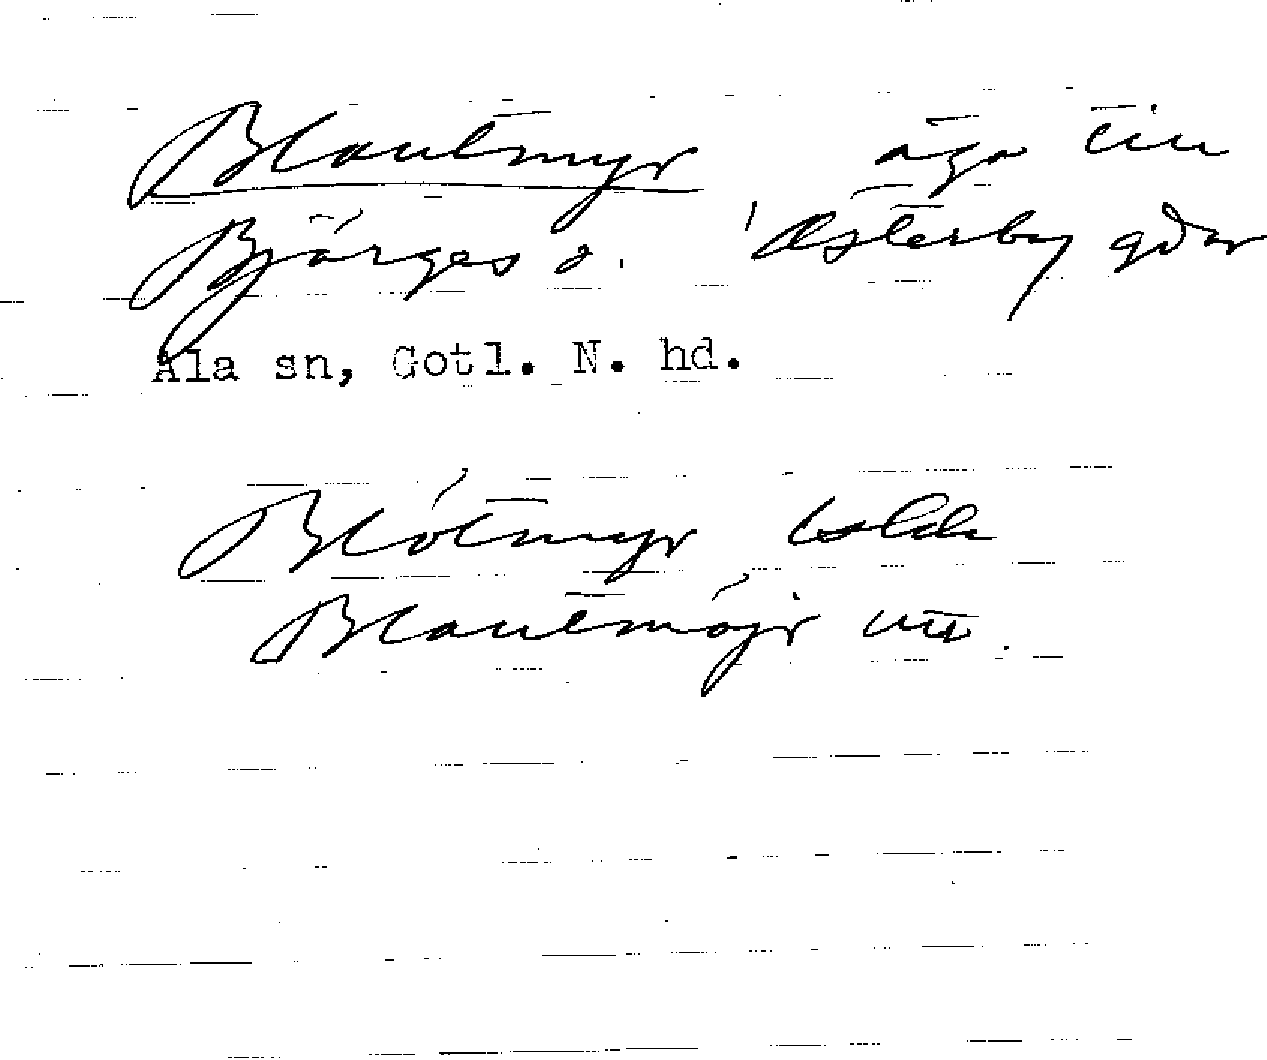 Blautmyr äga till
Bjärges o. Österby gdar
Ala sn, Gotl. N. hd.
Blótmyr
Blautmöjr utt.